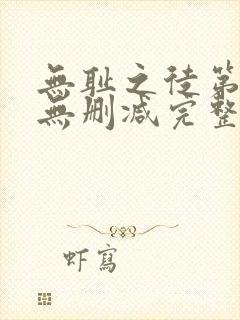 無耻之徒第
無删减完整
虾寫